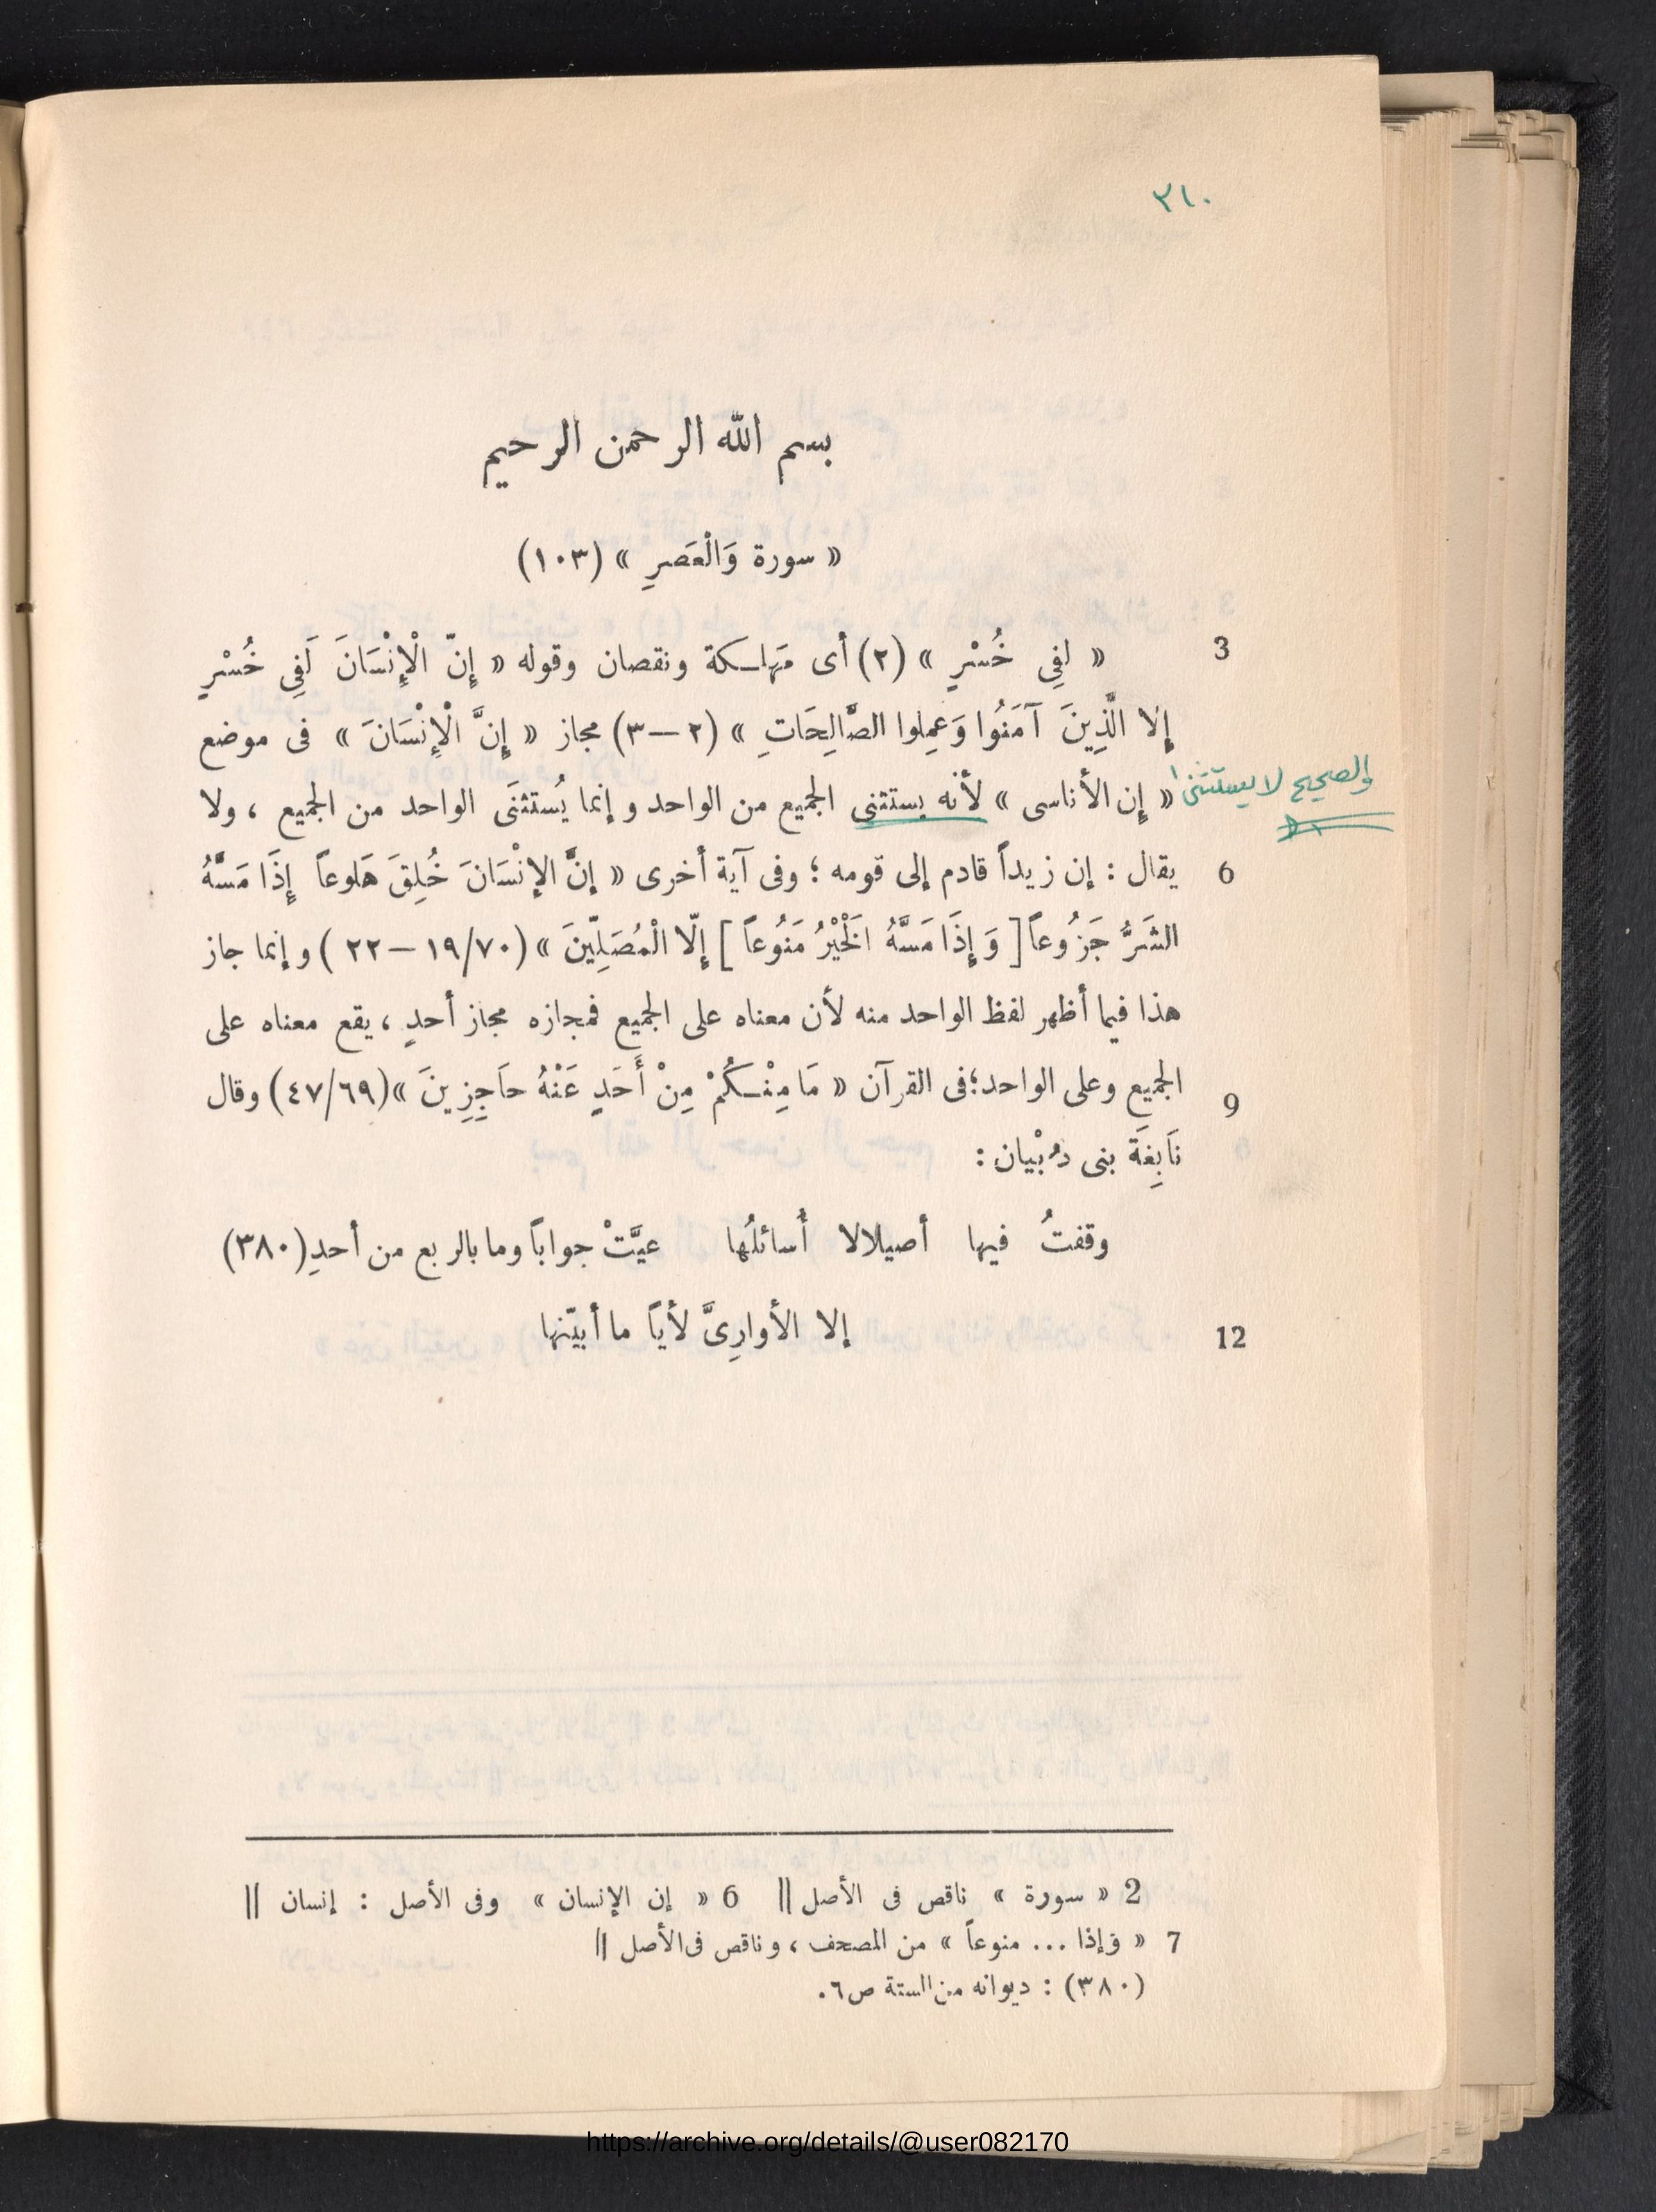 ٣١٠
بسم الله الرحمن الرحيم
« سورة وَالْعَصرِ » (١٠٣)
3 « لفِى خُسْرٍ » (٢) أى مَهلكة ونقصان وقوله « إِنّ الْإِنْسَانَ لَفِى خُسْرٍ
إِلا الَّذِينَ آمَنُوا وَعمِلوا الصَّالِحَاتِ » (٢ – ٣) مجاز « إِنَّ الْإِنْسَانَ » فى موضع
والصحيح لا يستثنى
« إِن الأناسى » لأنه يستثنى الجميع من الواحد وإنما يُستثنَى الواحد من الجميع ، ولا
6 يقال : إن زيداً قادم إلى قومه ؛ وفى آية أخرى « إنَّ الإنْسَانَ خُلِقَ هَلوعاً إِذَا مَسَّهُ
الشَرُّ جَزُوعاً [ وَإِذَا مَسَّهُ الَخْيْرُ مَنُوعاً ] إِلّا الْمُصَلِّينَ » (١٩/٧٠ – ٢٢ ) وإنما جاز
هذا فيما أظهر لفظ الواحد منه لأن معناه على الجميع فمجازه مجاز أحدٍ ، يقع معناه على
9 الجميع وعلى الواحد؛فى القرآن « مَا مِنْكُمْ مِنْ أَحَدٍ عَنْهُ حاَجِزِينَ »(٤٧/٦٩) وقال
نَابِغَة بنى ذُبْيان :
وقفتُ فيها أصيلالا أُسائلُها عيَّتْ جواباً وما بالربع من أحدِ(٣٨٠)
12 إلا الأوارِىَّ لأياً ما أبيّنها
2 « سورة » ناقص فى الأصل || 6 « إن الإنسان » وفى الأصل : إنسان ||
7 « وإذا ... منوعاً » من المصحف ، وناقص فى الأصل ||
(٣٨٠) : ديوانه من الستة ص٦.
https://archive.org/details/@user082170